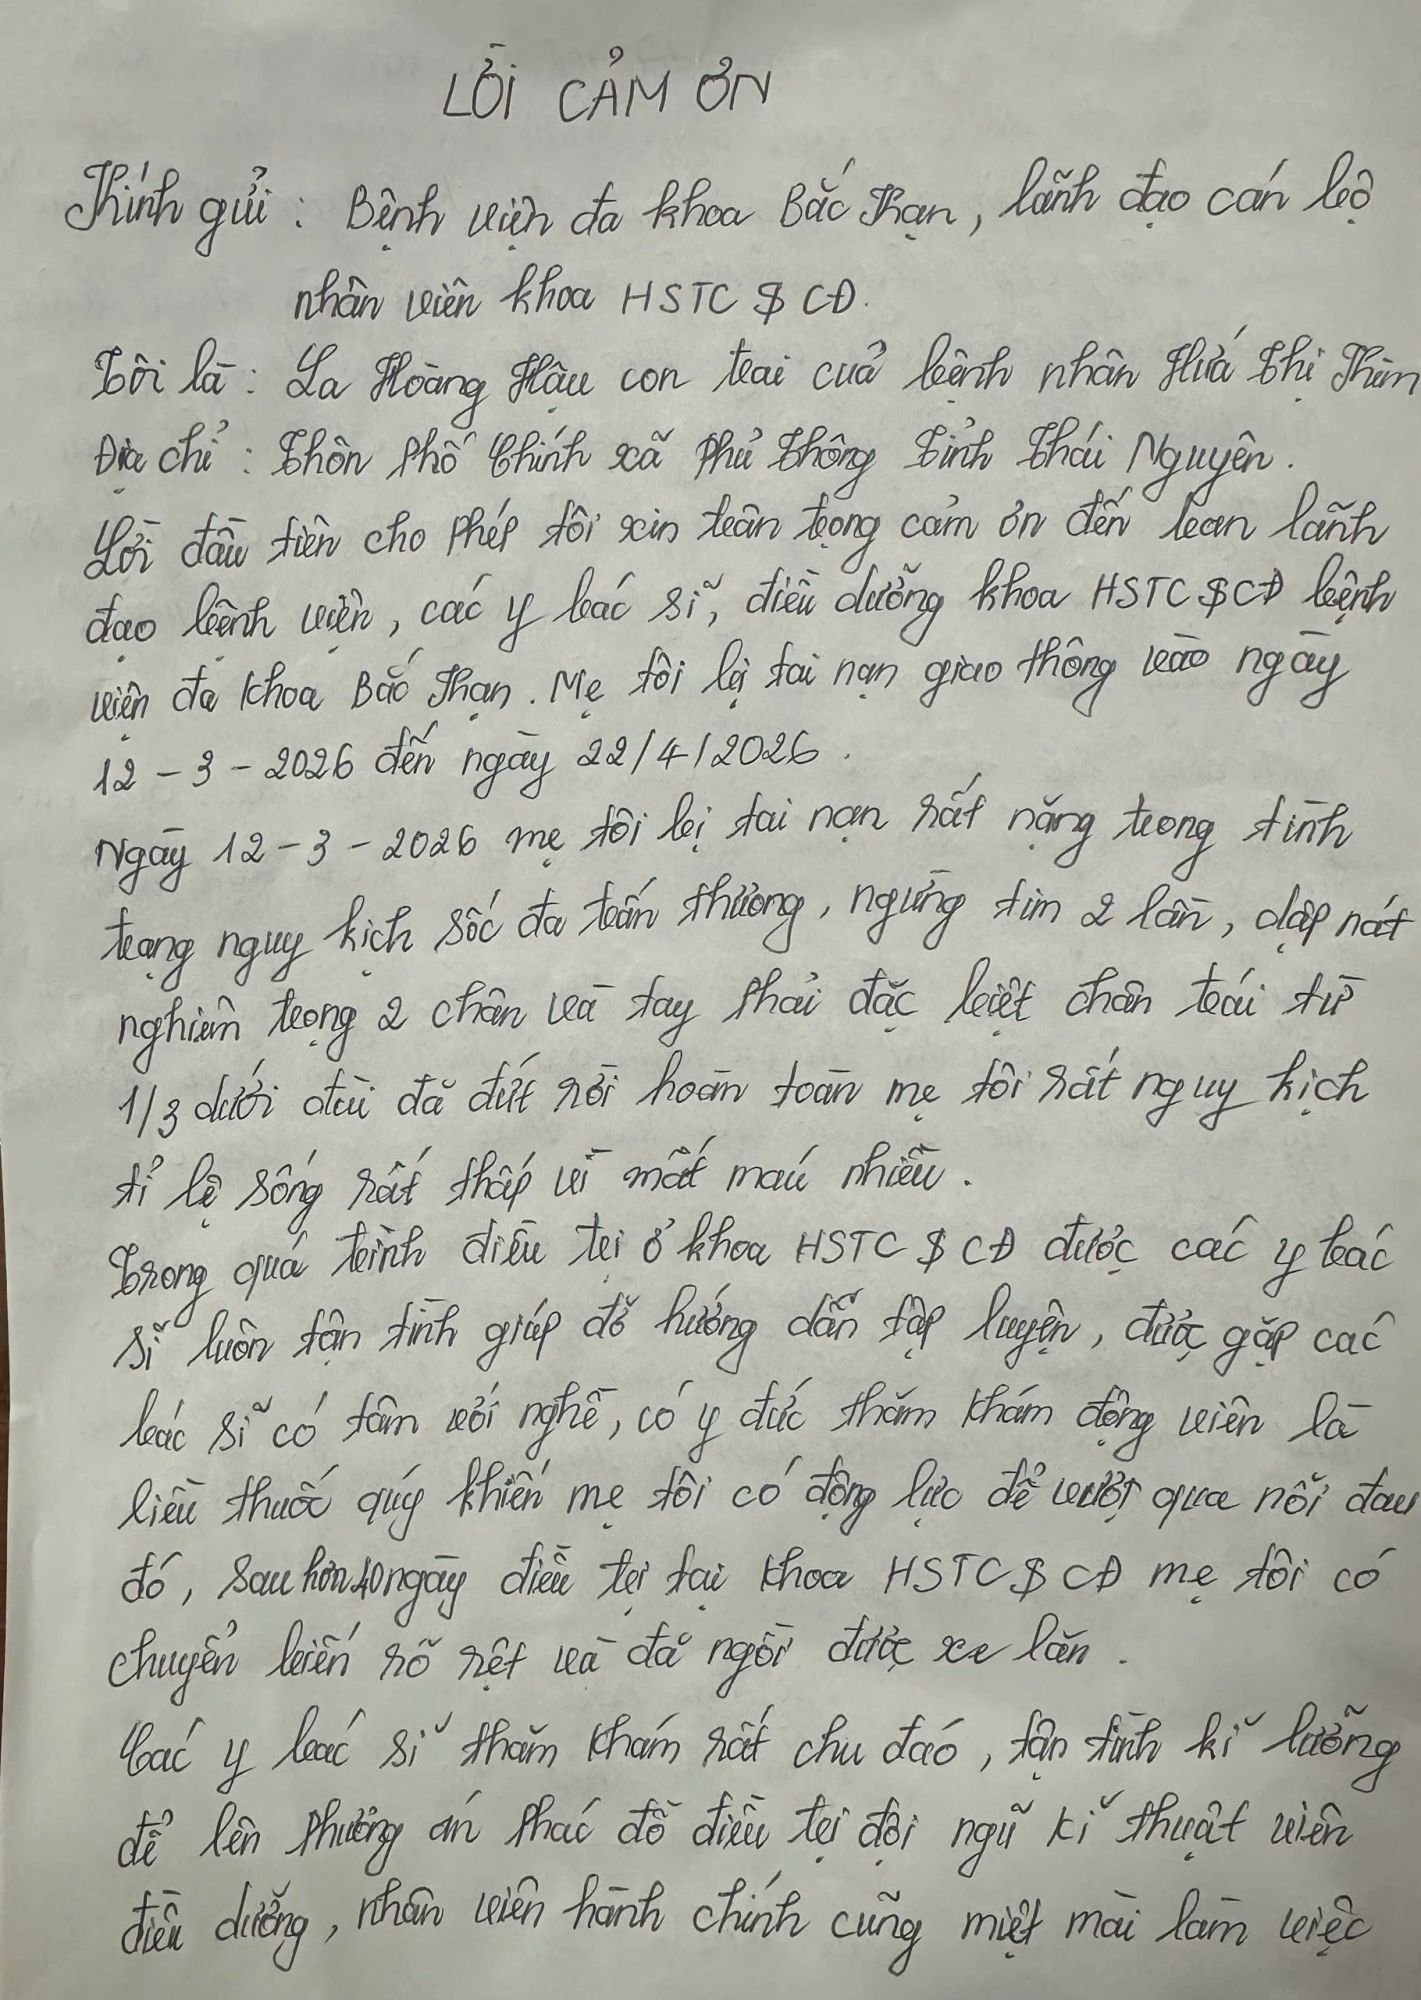 LỜI CẢM ƠN
Kính gửi : Bệnh viện đa khoa Bắc Kạn, lãnh đạo cán bộ
nhân viên khoa HSTC $ CĐ.
Tôi là : La Hoàng Hậu con trai của bệnh nhân Hứa Thị Thim
Địa chỉ : Thôn Phố Chính xã Phủ Thông Tỉnh Thái Nguyên.
Lời đầu tiên cho phép tôi xin trân trọng cảm ơn đến ban lãnh
đạo bệnh viện, các y bác sĩ, điều dưỡng khoa HSTC $ CĐ bệnh
viện đa khoa Bắc Kạn. Mẹ tôi bị tai nạn giao thông vào ngày
12 - 3 - 2026 đến ngày 22/4/2026.
Ngày 12 - 3 - 2026 mẹ tôi bị tai nạn rất nặng trong tình
trạng nguy kịch sốc đa trấn thương, ngừng tim 2 lần, dập nát
nghiêm trọng 2 chân và tay phải đặc biệt chân trái từ
1/3 dưới đùi đã đứt rời hoàn toàn mẹ tôi rất nguy kịch
tỉ lệ sống rất thấp vì mất máu nhiều.
Trong quá trình điều trị ở khoa HSTC $ CĐ được các y bác
sĩ luôn tận tình giúp đỡ hướng dẫn tập luyện, được gặp các
bác sĩ có tâm với nghề, có y đức thăm khám động viên là
liều thuốc quý khiến mẹ tôi có động lực để vượt qua nỗi đau
đó, sau hơn 40 ngày điều trị tại khoa HSTC $ CĐ mẹ tôi có
chuyển biến rõ rệt và đã ngồi được xe lăn.
Các y bác sĩ thăm khám rất chu đáo, tận tình kĩ lưỡng
để lên phương án phác đồ điều trị đội ngũ kĩ thuật viên
điều dưỡng, nhân viên hành chính cũng miệt mài làm việc